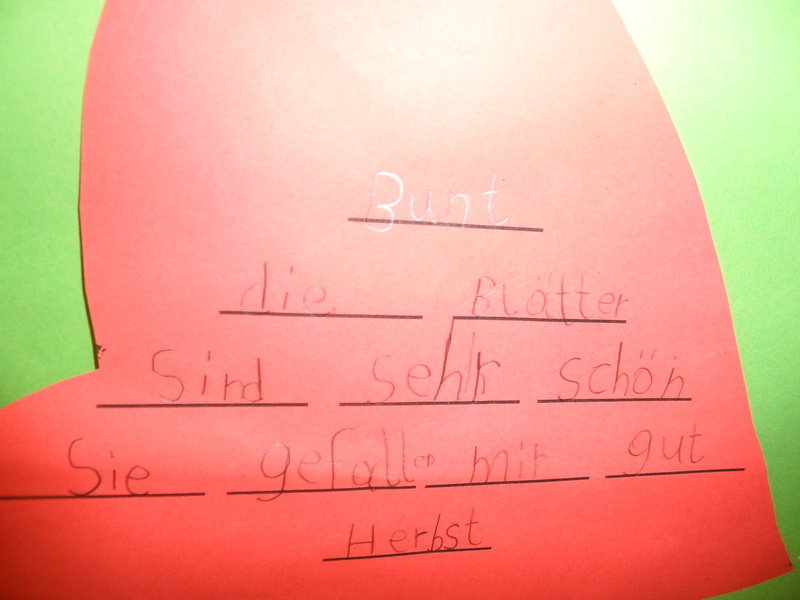 Bunt
die Blätter
Sind sehr schön
Sie gefallen mir gut
Herbst